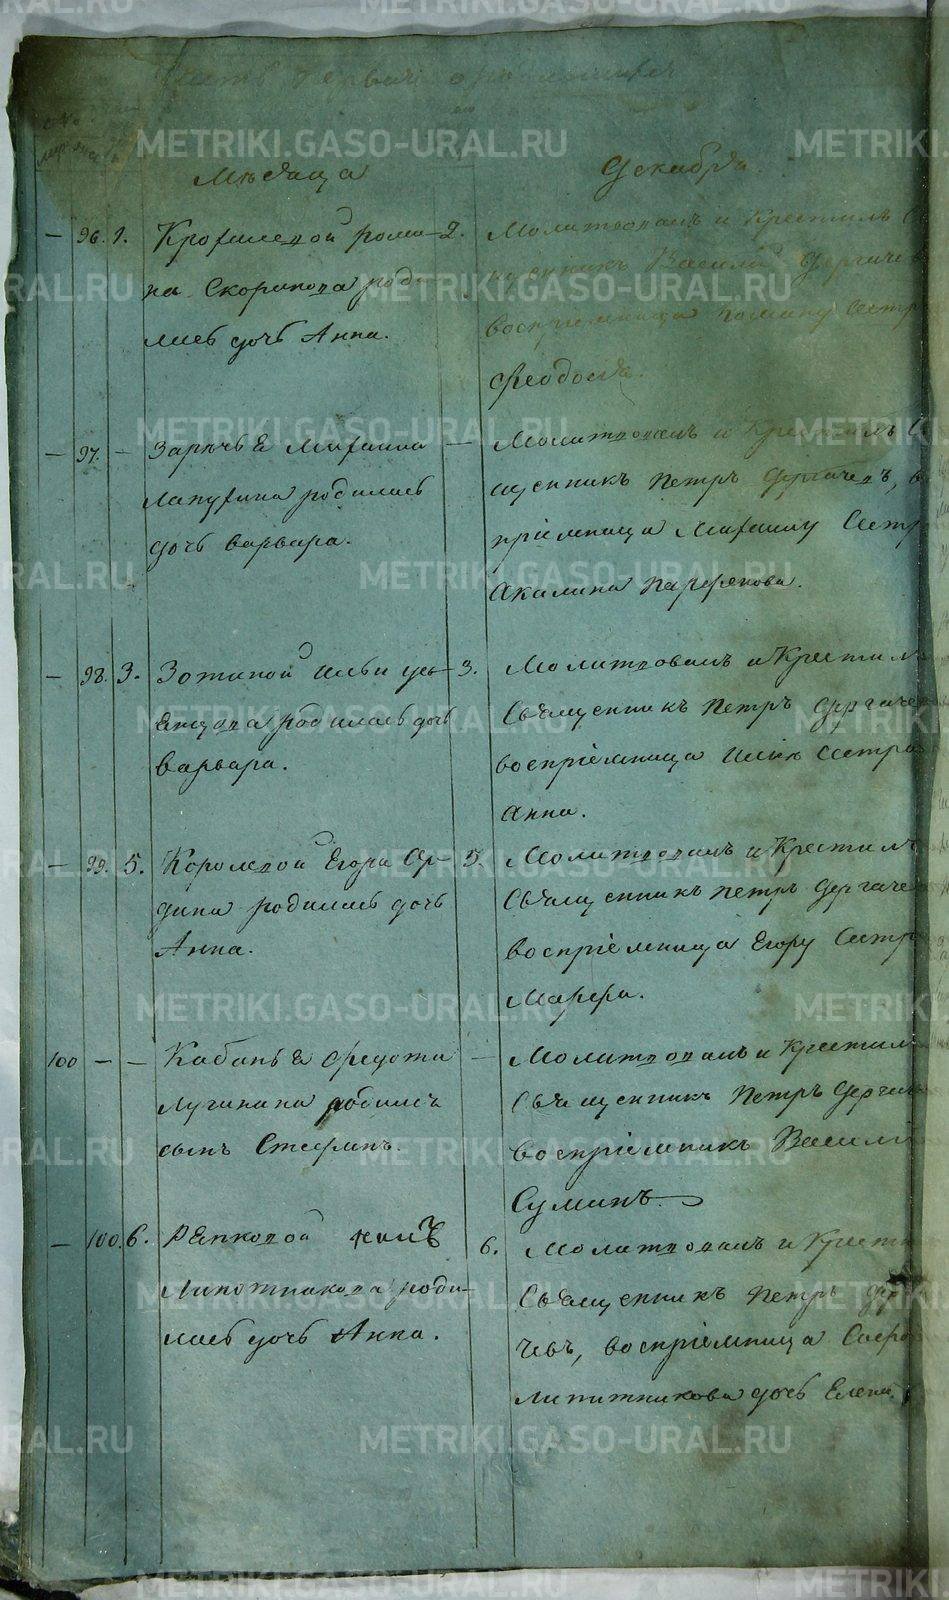 Часть первая о родившихся
Месяца Декабря
— 96. 1. Крохалевой рома- 2. Молитвовалъ и Крестилъ С
на Скорикова роди щенникъ Василий Дергачев
лась дочь Анна. воспріемница роману Сестр
Феодосья.
— 97. — Заречья Михаила — Молитвовалъ и Крестилъ С
Лапухина родилась щенникъ Петръ Дергачевъ, в
дочь варвара. пріемница Михаилу Сестр
Акилина Парфенова.
— 98. 3. Зотиной Ильи 3. Молитвовалъ и Крестил
родилась дочь Священникъ Петръ Дергаче
варвара. воспріемница Илье Сестра
Анна.
— 99. 5. Королевой Егора Ор- 5. Молитвовалъ и Крестилъ
дина родилась дочь Священникъ Петръ Дергаче
Анна. воспріемница Егору Сестр
Марфа.
100 — — Кабанья Федота — Молитвовалъ и Крестил
Лугинина родился Священникъ Петръ Дергач
сынъ Стефанъ. воспріемникъ Василі
Суминъ.
— 100. 6. Репковой 6. Молитвовалъ и Крести
роди- Священникъ Петръ Дерга
лась дочь Анна. чевъ, воспріемница
липитникова дочь Елена.
METRIKI.GASO-URAL.RU